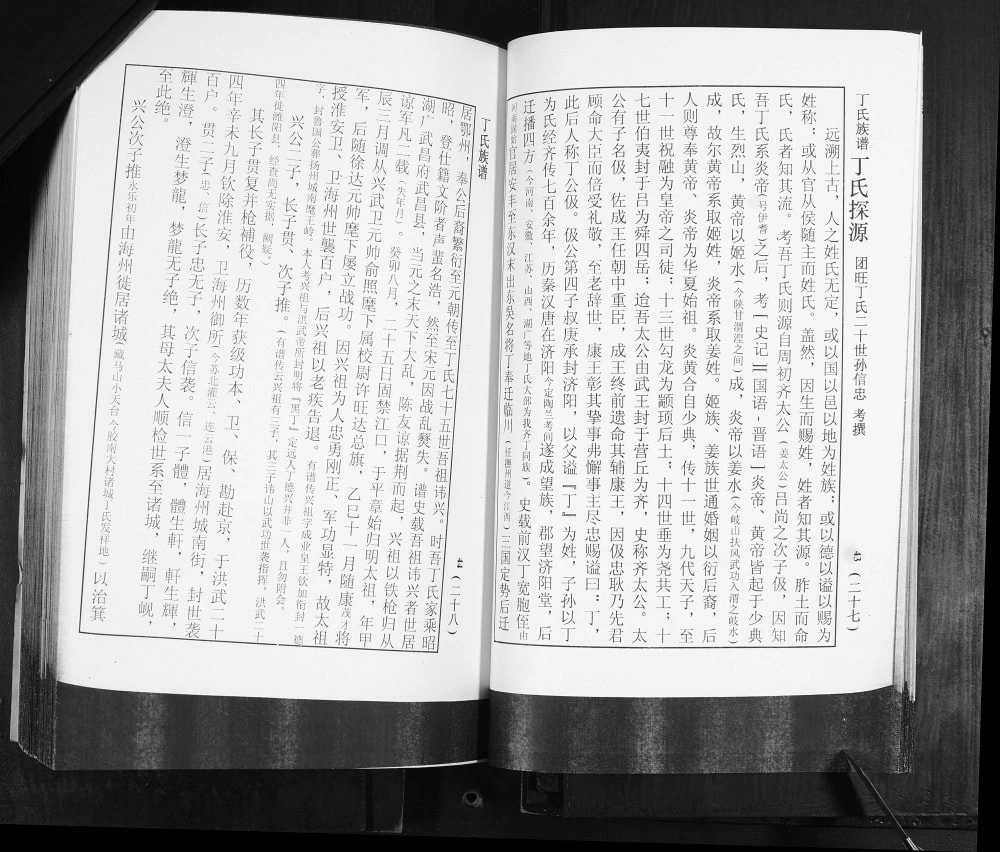 丁氏族谱 丁氏探源 团旺丁氏二十世孙信忠 考撰
43(二十七)
远溯上古，人之姓氏无定，或以国以邑以地为姓族；或以德以谥以赐为
姓称；或从官从侯随主而姓氏。盖然，因生而赐姓，姓者知其源。胙土而命
氏，氏者知其流。考吾丁氏则源自周初齐太公(姜太公)吕尚之次子伋，因知
吾丁氏系炎帝(号伊耆)之后，考《史记》《国语·晋语》炎帝、黄帝皆起于少典
氏，生烈山，黄帝以姬水(今陕甘渭湟之间)成，炎帝以姜水(今岐山扶风武功入渭之岐水)
成，故尔黄帝系取姬姓，炎帝系取姜姓。姬族、姜族世通婚姻以衍后裔，后
人则尊奉黄帝、炎帝为华夏始祖。炎黄合自少典，传十一世，九代天子，至
十一世祝融为皇帝之司徒；十三世勾龙为颛顼后土；十四世垂为尧共工；十
七世伯夷封于吕为舜四岳；迨吾太公由武王封于营丘为齐，史称齐太公。太
公有子名伋，佐成王任朝中重臣，成王终前遗命其辅康王，因伋忠耿乃先君
顾命大臣而倍受礼敬，至老辞世，康王彰其挚事弗懈事主尽忠赐谥曰：丁，
此后人称丁公伋。伋公第四子叔庚承封济阳，以父谥『丁』为姓，子孙以丁
为氏经齐传七百余年，历秦汉唐在济阳今定陶兰考间遂成望族，郡望济阳堂，后
迁播四方(今河南、安徽、江苏、山西、湖广等地丁氏大部为我齐丁同族)。史载前汉丁宽胞侄由
河南固始官居安丰至东汉末出东吴名将丁奉迁临川(任抚州道今江西)三国定势后迁
丁氏族谱
44(二十八)
居鄂州，奉公后裔繁衍至元朝传至丁氏七十五世吾祖讳兴。时吾丁氏家乘昭
昭，登仕籍文阶者声蜚名浩，然至宋元因战乱燹失。谱史载吾祖讳兴者世居
湖广武昌府武昌县，当元之末天下大乱，陈友谅据荆而起，兴祖以铁枪归从
谅军凡二载(失年月)。癸卯八月，二十五日固禁江口，于平章始归明太祖，年甲
辰三月调从兴武卫元帅俞照麾下属校尉许旺达总旗，乙巳十一月随康茂才将
军，后随徐达元帅麾下屡立战功。因兴祖为人忠勇刚正、军功显特，故太祖
授淮安卫、卫海州世袭百户，后兴祖以老疾告退。有谱传兴祖字成业皇王钦加衔封一德
字，封鲁国公葬扬州城南麾王岭。本人考兴祖与洪武帝所封明将『黑丁』(定远人丁德兴)并非一人，且勿附会。
兴公二子，长子贯、次子推。(有谱传云兴祖有三子，其三子讳山以武功世袭指挥。洪武二十
四年徙潍阳县，经查尚无实据 阙疑。
其长子贯复并枪补役，历数年获级功本、卫、保、勘赴京，于洪武二十
四年辛未九月钦除淮安，卫海州御所(今苏北灌云、连云港)居海州城南街，封世袭
百户。贯二子(忠、信)长子忠无子，次子信袭。信一子體，體生軒，軒生輝，
輝生澄，澄生梦龍，梦龍无子绝，其母太夫人顺检世系至诸城，继嗣丁岘，
至此绝。
兴公次子推永乐初年由海州徙居诸城(藏马山小天台今胶南大村诸城丁氏发祥地)以治箕